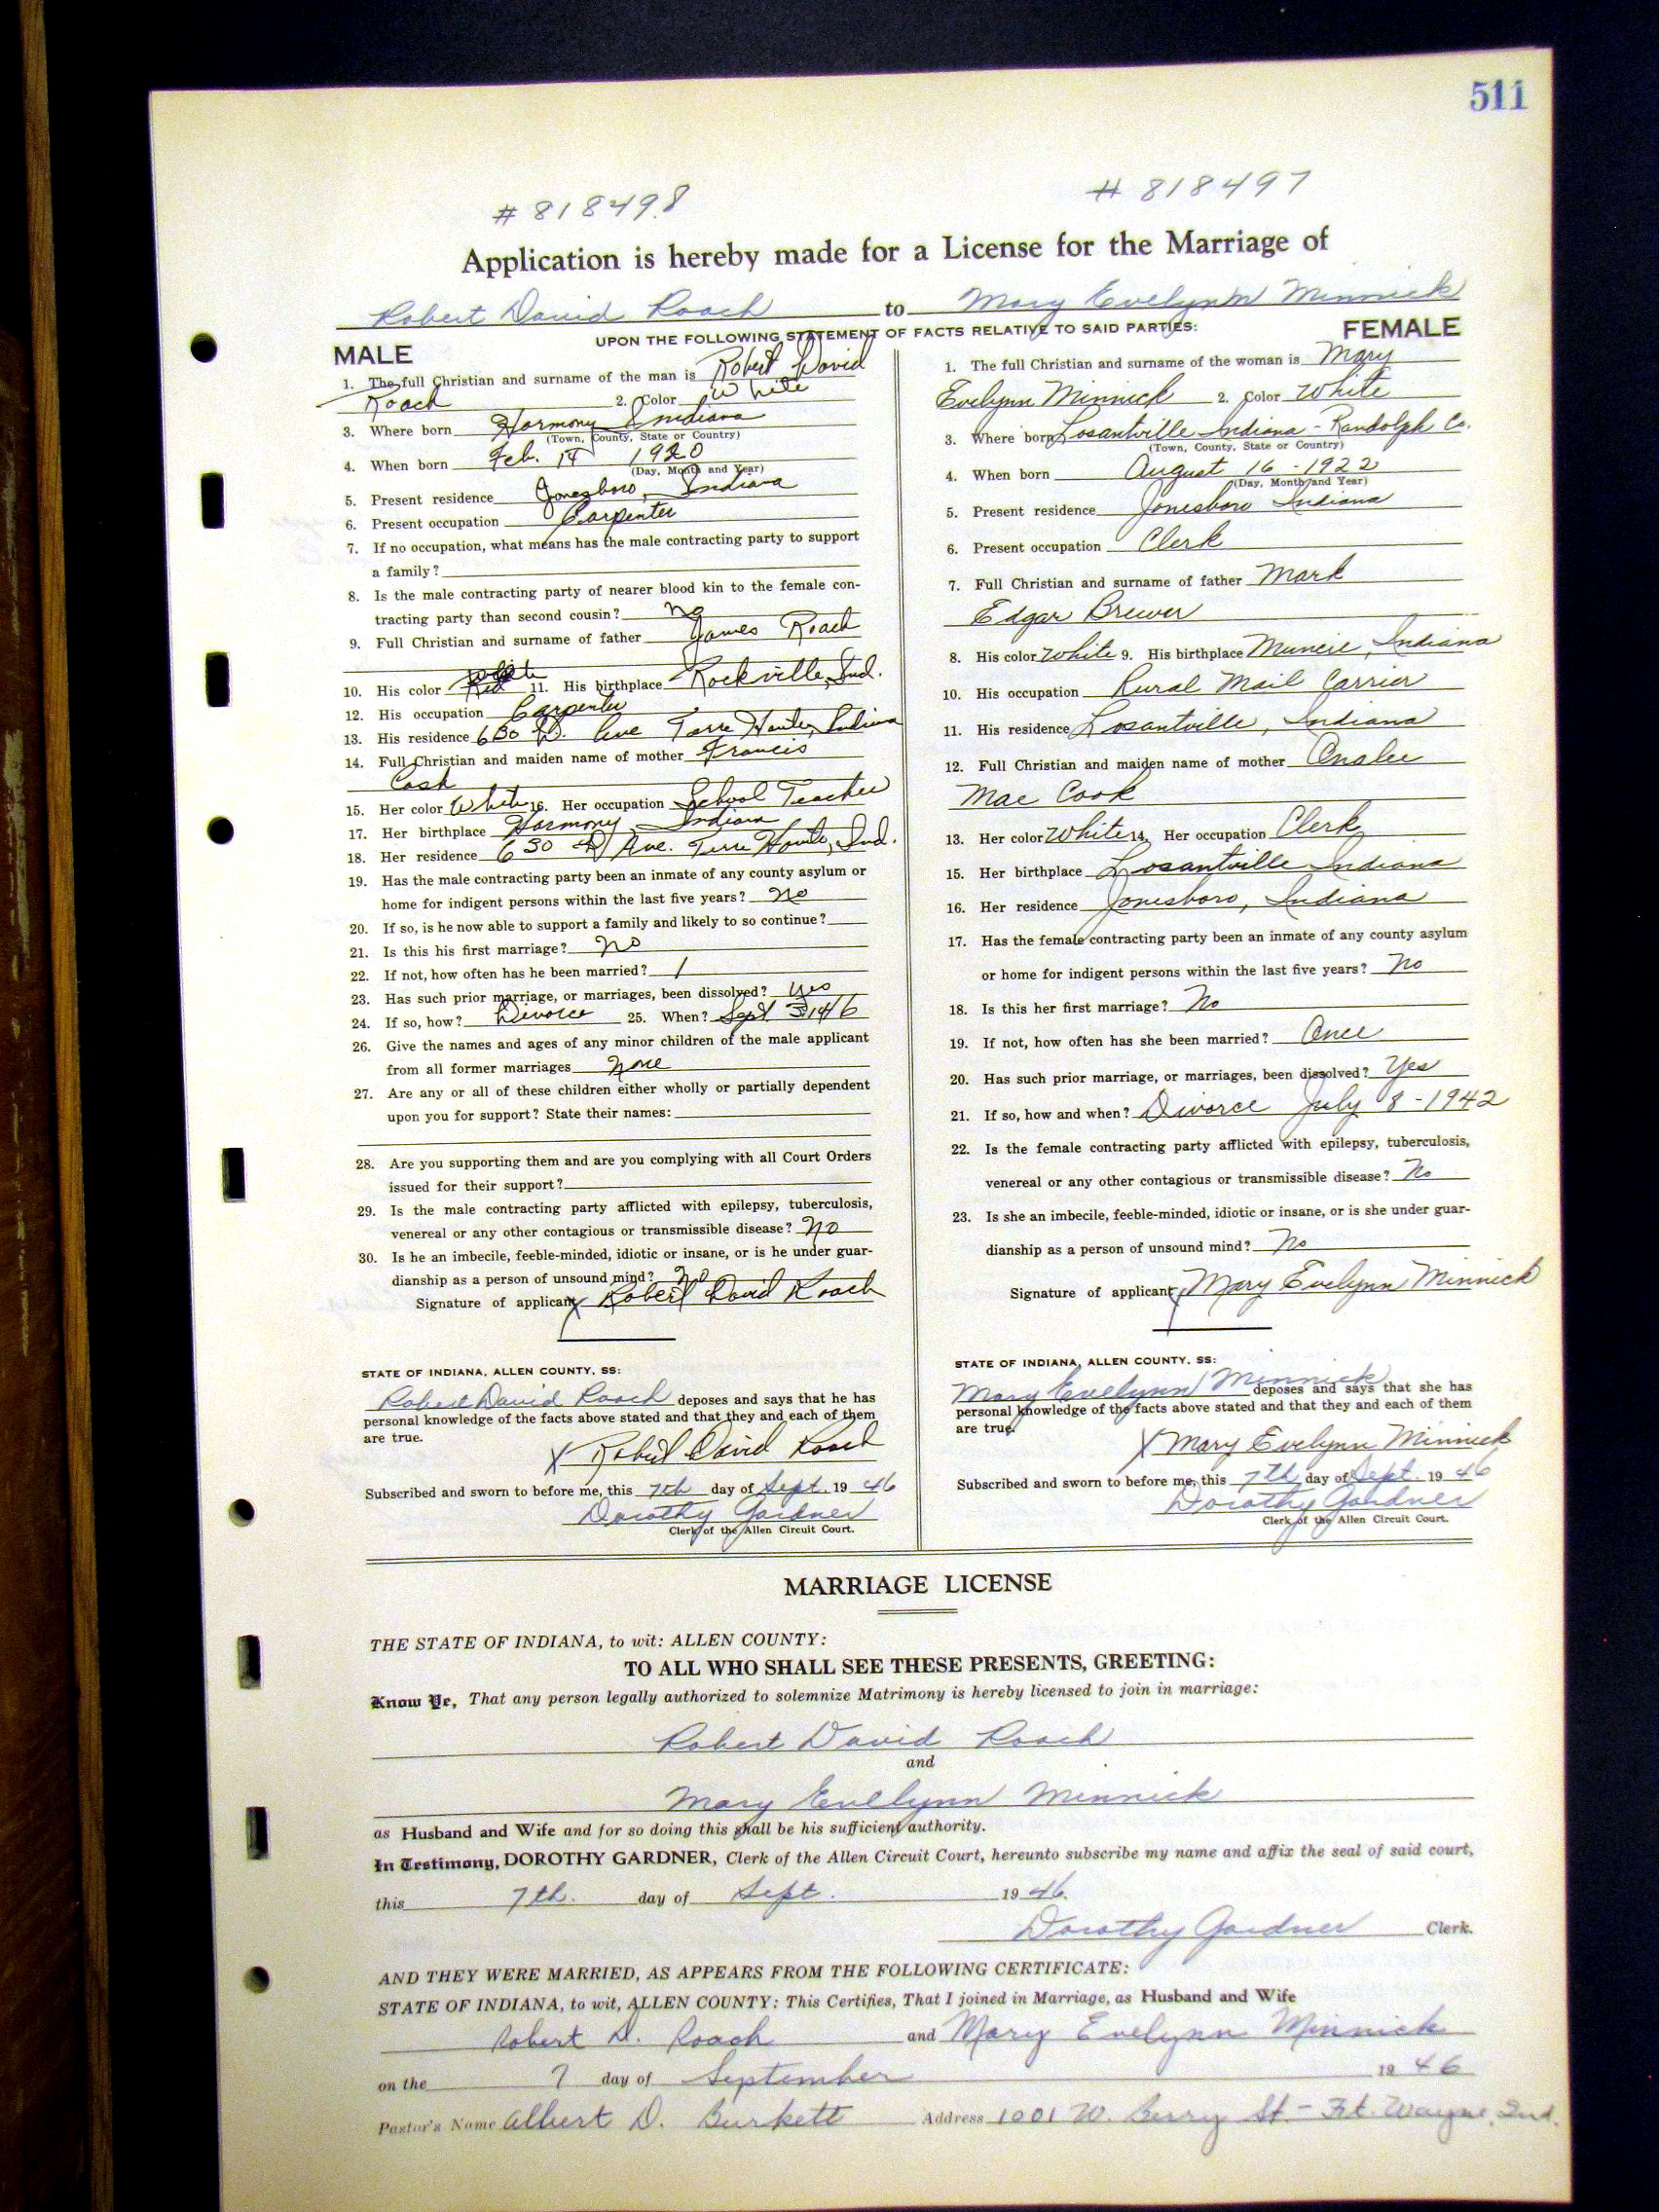 511
# 818498
# 818497
Application is hereby made for a License for the Marriage of
Robert David Roach to Mary Evelynn Minnick
UPON THE FOLLOWING STATEMENT OF FACTS RELATIVE TO SAID PARTIES:
MALE
1. The full Christian and surname of the man is Robert David
Roach 2. Color White
3. Where born Harmony Indiana
(Town, County, State or Country)
4. When born Feb. 14 1920
(Day, Month and Year)
5. Present residence Jonesboro, Indiana
6. Present occupation Carpenter
7. If no occupation, what means has the male contracting party to support
a family?
8. Is the male contracting party of nearer blood kin to the female con-
tracting party than second cousin? No
9. Full Christian and surname of father James Roach
10. His color White 11. His birthplace Rockville, Ind.
12. His occupation Carpenter
13. His residence 630 Ave Terre Haute, Indiana
14. Full Christian and maiden name of mother Francis
Cash
15. Her color White 16. Her occupation School Teacher
17. Her birthplace Harmony, Indiana
18. Her residence 630 Ave. Terre Haute, Ind.
19. Has the male contracting party been an inmate of any county asylum or
home for indigent persons within the last five years? No
20. If so, is he now able to support a family and likely to so continue?
21. Is this his first marriage? No
22. If not, how often has he been married? 1
23. Has such prior marriage, or marriages, been dissolved? Yes
24. If so, how? Divorce 25. When? Sept 3 1946
26. Give the names and ages of any minor children of the male applicant
from all former marriages None
27. Are any or all of these children either wholly or partially dependent
upon you for support? State their names:
28. Are you supporting them and are you complying with all Court Orders
issued for their support?
29. Is the male contracting party afflicted with epilepsy, tuberculosis,
venereal or any other contagious or transmissible disease? No
30. Is he an imbecile, feeble-minded, idiotic or insane, or is he under guar-
dianship as a person of unsound mind? No
Signature of applicant X Robert David Roach
STATE OF INDIANA, ALLEN COUNTY, SS:
Robert David Roach deposes and says that he has
personal knowledge of the facts above stated and that they and each of them
are true.
X Robert David Roach
Subscribed and sworn to before me, this 7th day of Sept. 1946
Dorothy Gardner
Clerk of the Allen Circuit Court.
FEMALE
1. The full Christian and surname of the woman is Mary
Evelynn Minnick 2. Color White
3. Where born Losantville Indiana - Randolph Co.
(Town, County, State or Country)
4. When born August 16 - 1922
(Day, Month and Year)
5. Present residence Jonesboro Indiana
6. Present occupation Clerk
7. Full Christian and surname of father Mark
Edgar Brewer
8. His color White 9. His birthplace Muncie, Indiana
10. His occupation Rural Mail Carrier
11. His residence Losantville, Indiana
12. Full Christian and maiden name of mother Onalee
Mae Cook
13. Her color White 14. Her occupation Clerk
15. Her birthplace Losantville Indiana
16. Her residence Jonesboro, Indiana
17. Has the female contracting party been an inmate of any county asylum
or home for indigent persons within the last five years? No
18. Is this her first marriage? No
19. If not, how often has she been married? Once
20. Has such prior marriage, or marriages, been dissolved? Yes
21. If so, how and when? Divorce July 8 - 1942
22. Is the female contracting party afflicted with epilepsy, tuberculosis,
venereal or any other contagious or transmissible disease? No
23. Is she an imbecile, feeble-minded, idiotic or insane, or is she under guar-
dianship as a person of unsound mind? No
Signature of applicant X Mary Evelynn Minnick
STATE OF INDIANA, ALLEN COUNTY, SS:
Mary Evelynn Minnick deposes and says that she has
personal knowledge of the facts above stated and that they and each of them
are true.
X Mary Evelynn Minnick
Subscribed and sworn to before me, this 7th day of Sept. 1946
Dorothy Gardner
Clerk of the Allen Circuit Court.
MARRIAGE LICENSE
THE STATE OF INDIANA, to wit: ALLEN COUNTY:
TO ALL WHO SHALL SEE THESE PRESENTS, GREETING:
Know Ye, That any person legally authorized to solemnize Matrimony is hereby licensed to join in marriage:
Robert David Roach
and
Mary Evelynn Minnick
as Husband and Wife and for so doing this shall be his sufficient authority.
In Testimony, DOROTHY GARDNER, Clerk of the Allen Circuit Court, hereunto subscribe my name and affix the seal of said court,
this 7th. day of Sept. 1946.
Dorothy Gardner Clerk.
AND THEY WERE MARRIED, AS APPEARS FROM THE FOLLOWING CERTIFICATE:
STATE OF INDIANA, to wit, ALLEN COUNTY: This Certifies, That I joined in Marriage, as Husband and Wife
Robert D. Roach and Mary Evelynn Minnick
on the 7 day of September 1946
Pastor's Name Albert D. Burkett Address 1001 W. Berry St - Ft. Wayne, Ind.